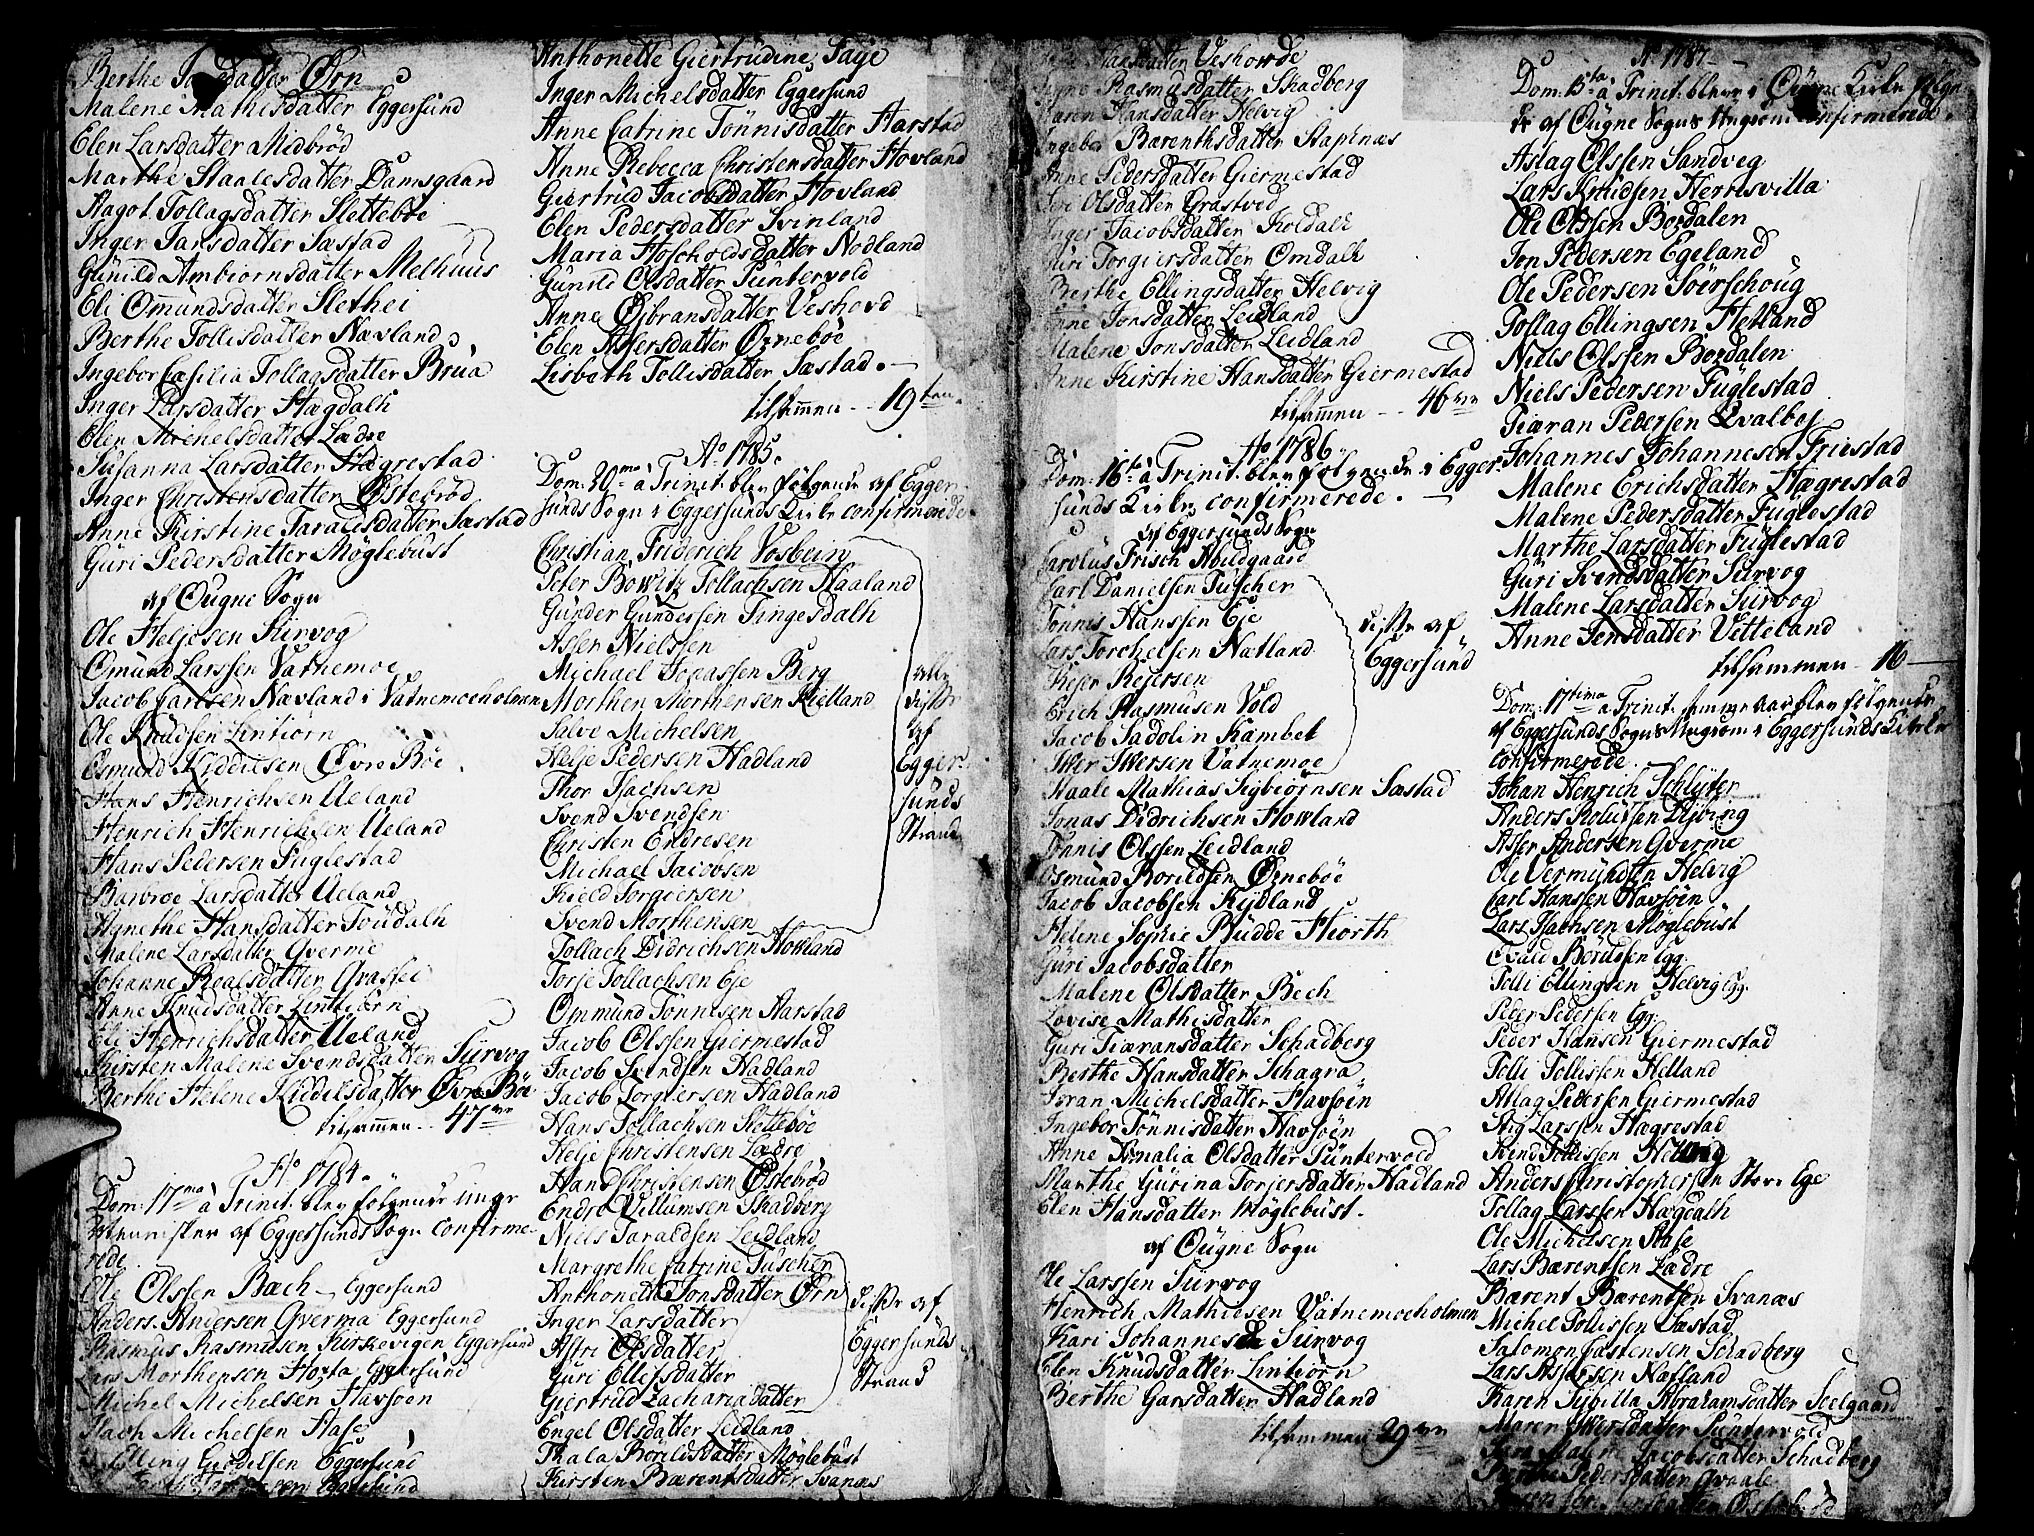 Berthe Larsdatter Ørn
Malene Mathisdatter Eggersund
Elen Larsdatter Midbrød
Marthe Staalesdatter Damsgaard
Aagot Tollagsdatter Slettebøe
Inger Larsdatter Sæstad
Gunild Ambiornsdatter Melhuus
Eli Omundsdatter Slethei
Berthe Tollisdatter Nævland
Ingebor Cæsilia Tollagsdatter Brua
Inger Larsdatter Hægdalh
Elen Michelsdatter Lædre
Susanna Larsdatter Hægrestad
Inger Christensdatter Østebrød
Anne Kirstine Taraldsdatter Sæstad
Guri Pedersdatter Møglebust
af Ougne Sogn
Ole Heljesen Sürvog
Omund Larssen Vatnemoe
Jacob Garssen Nævland i Vatnemoeholmen
Ole Knudsen Lintiørn
Osmund Kiddilsen Øvre Bøe
Hans Henrichsen Ueland
Henrich Henrichsen Ueland
Hans Pedersen Fuglestad
Barbroe Larsdatter Ueland
Agnethe Hansdatter Toudalh
Malene Larsdatter Qverme
Johanne Roalsdatter Grassei
Anne Knudsdatter Lintiørn
Eli Henrichsdatter Ueland
Kirsten Malene Svendsdatter Sürvog
Berthe Helene Kiddilsdatter Øvre Bøe
tilsammen . . 47ve
Ao 1784.
Dom: 17ma à Trinit. blev følgende unge
Mennisker af Eggersunds Sogn confirme-
rede.
Ole Olssen Bach - Eggersund
Anders Andersen Qverma Eggersund
Rasmus Rasmussen Kirkevigen Eggersund
Lars Morthensen Hoxta Eggersund
Michel Michelsen Havsøen
Isach Michelsen Hase
Elling Giedilsen Eggersund
Anthonette Giertrudine Saye
Inger Michelsdatter Eggersund
Anne Catrine Tönnisdatter Aarstad
Anne Rebecca Christensdatter Hovland
Giertrud Jacobsdatter Hovland
Elen Pedersdatter Svinland
Maria Hoscholdsdatter Nodland
Gunild Olsdatter Puntervold
Anne Osbransdatter Veshovd
Elen Assersdatter Ørnebøe
Lisbeth Tollisdatter Sæstad. -
tilsammen . . 19ten.
Ao 1785.
Dom: 20ma à Trinit. blev følgende af Egger-
sunds Sogn i Eggersunds Kirke confirmerede.
Christian Friderich Vosbein
Peter Bowitz Tollachsen Haaland
Gunder Gundersen Tingesdalh
Asser Nielssen
Michael Jonassen Berg
Morthen Morthensen Kielland
Salve Michelsen
Helje Pedersen Hadland
Thor Isachsen
Svend Svendsen
Christen Endresen
Michael Jacobsen
Kield Torgiersen
Svend Morthensen
alle
disse
af
Egger-
sunds
Strand
Tollach Didrichsen Howland
Torje Tollachsen Eje
Ommund Tönnesen Aarstad
Jacob Olssen Giermestad
Jacob Svendsen Hadland
Jacob Torgiersen Hadland
Hans Tollachsen Slettebøe
Helje Christensen Lædre
Hans Christensen Østebrød
Endre Villumsen Skadberg
Niels Taraldsen Leidland
Margrethe Catrine Tuscher
Anthonette Jonsdatter Ørn
Inger Larsdatter
Astri Olsdatter
Guri Ellifsdatter
Giertrud Zachariadatter
disse af
Eggersunds
Strand
Engel Olsdatter Leidland
Thala Börildsdatter Møglebust
Kirsten Bærentsdatter Svanæs
Hansdatter Veshovde
Signe Rasmusdatter Skadberg
Karen Hansdatter Helvig
Ingebor Barenthsdatter Stapenæs
Anne Pedersdatter Giermestad
Siri Olsdatter Grastved
Inger Jacobsdatter Koldalh
Guri Torgiersdatter Omdalh
Berthe Ellingsdatter Helvig
Anne Jonsdatter Leidland
Malene Jonsdatter Leidland
Anne Kirstine Hansdatter Giermestad
tilsammen . . 46ve
Ao 1786
Dom: 16ta à Trinit. blev følgende i Egger-
sunds Kirke confirmerede. -
af Eggersunds Sogn
Carolus Frisch Huidgaard
Carl Danielsen Tuscher
Tönnis Hanssen Eje
Lars Torchelsen Nætland
Reier Reiersen
Erich Rasmusen Vold
Jacob Sadolin Kambek
Iwer Iwersen Vatnemoe
disse af
Eggersund
Staale Mathias Sigbiørnsen Sæstad
Jonas Didrichsen Howland
Tönnis Olssen Leidland
Osmund Borildsen Ørnebøe
Jacob Jacobsen Rydland
Helene Sophie Budde Hiorth
Guri Jacobsdatter
Malene Olsdatter Bech
Lovise Mathisdatter
Guri Tiæransdatter Schadberg
Berthe Hansdatter Schagra
Joran Michelsdatter Havsöen
Ingebor Tönnisdatter Havsöen
Anne Amalia Olsdatter Puntervold
Marthe Gurina Torjersdatter Hadland
Elen Hansdatter Møglebust.
af Ougne Sogn
Ole Larssen Sürvog
Henrich Mathiesen Vatnemoeholmen
Kari Johannesda Sürvog
Elen Knudsdatter Lintiørn
Berthe Garsdatter Hadland
tilsammen 29ve
Ao 1787 -
Dom: 13ta à Trinit. bleve i Ougne Kirke følgen-
de af Ougne Sogns Ungdom confirmerede.
Aslag Olssen Sandveg
Lars Knudsen Herrisvilla
Ole Olssen Bordalen
Jon Pedersen Egeland
Ole Pedersen Söerschoug
Tollag Ellingsen Hetland
Niels Olssen Bordalen
Niels Pedersen Fuglestad
Tiæran Pedersen Qvalbej
Johannes Johannesen Friestad
Malene Erichsdatter Hægrestad
Malene Pedersdatter Fuglestad
Marthe Larsdatter Fuglestad
Guri Svendsdatter Sürvog
Malene Larsdatter Sürvog
Anne Jensdatter Vetteland
tilsammen - 16
Dom: 17tima à Trinit. samme aar blev følgende
af Eggersunds Sogns Ungdom i Eggersunds Kirke
confirmerede.
Johan Henrich Schlyter
Anders Rolufsen Dybing
Asser Andersen Qverme
Ole Vermundsen Helvig
Carl Hanssen Havsöen
Lars Isachsen Møglebust
Evald Börildsen Egg.
Tolli Ellingsen Helvig Egg.
Peder Pedersen Egg.
Peder Hansen Giermestad
Tolli Tollissen Helland
Aslag Pedersen Giermestad
Stig Larssen Hægrestad
Svend Tollissen
Anders Christophersen Store Ege
Tollag Larssen Hægdalh
Ole Michelsen Hase
Lars Bærentsen Lædre
Bærent Bærentsen Svanæs
Michel Tollissen Sæstad
Salomon Carstensen Schadberg
Lars Assersen Nætland
Karen Sybilla Abrahamsdatter Seelgaard
Maren Iwersdatter Puntervold
Jacobsdatter Schadberg
Berthe Pedersdatter Qvaale